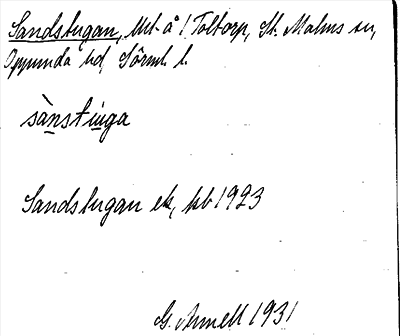 Sandstugan, lht å 1 Toltorp, St. Malms sn,
Oppunda hd, Sörml. l.
sànstuga
Sandstugan ek, kb 1923
G. Ameen 1931